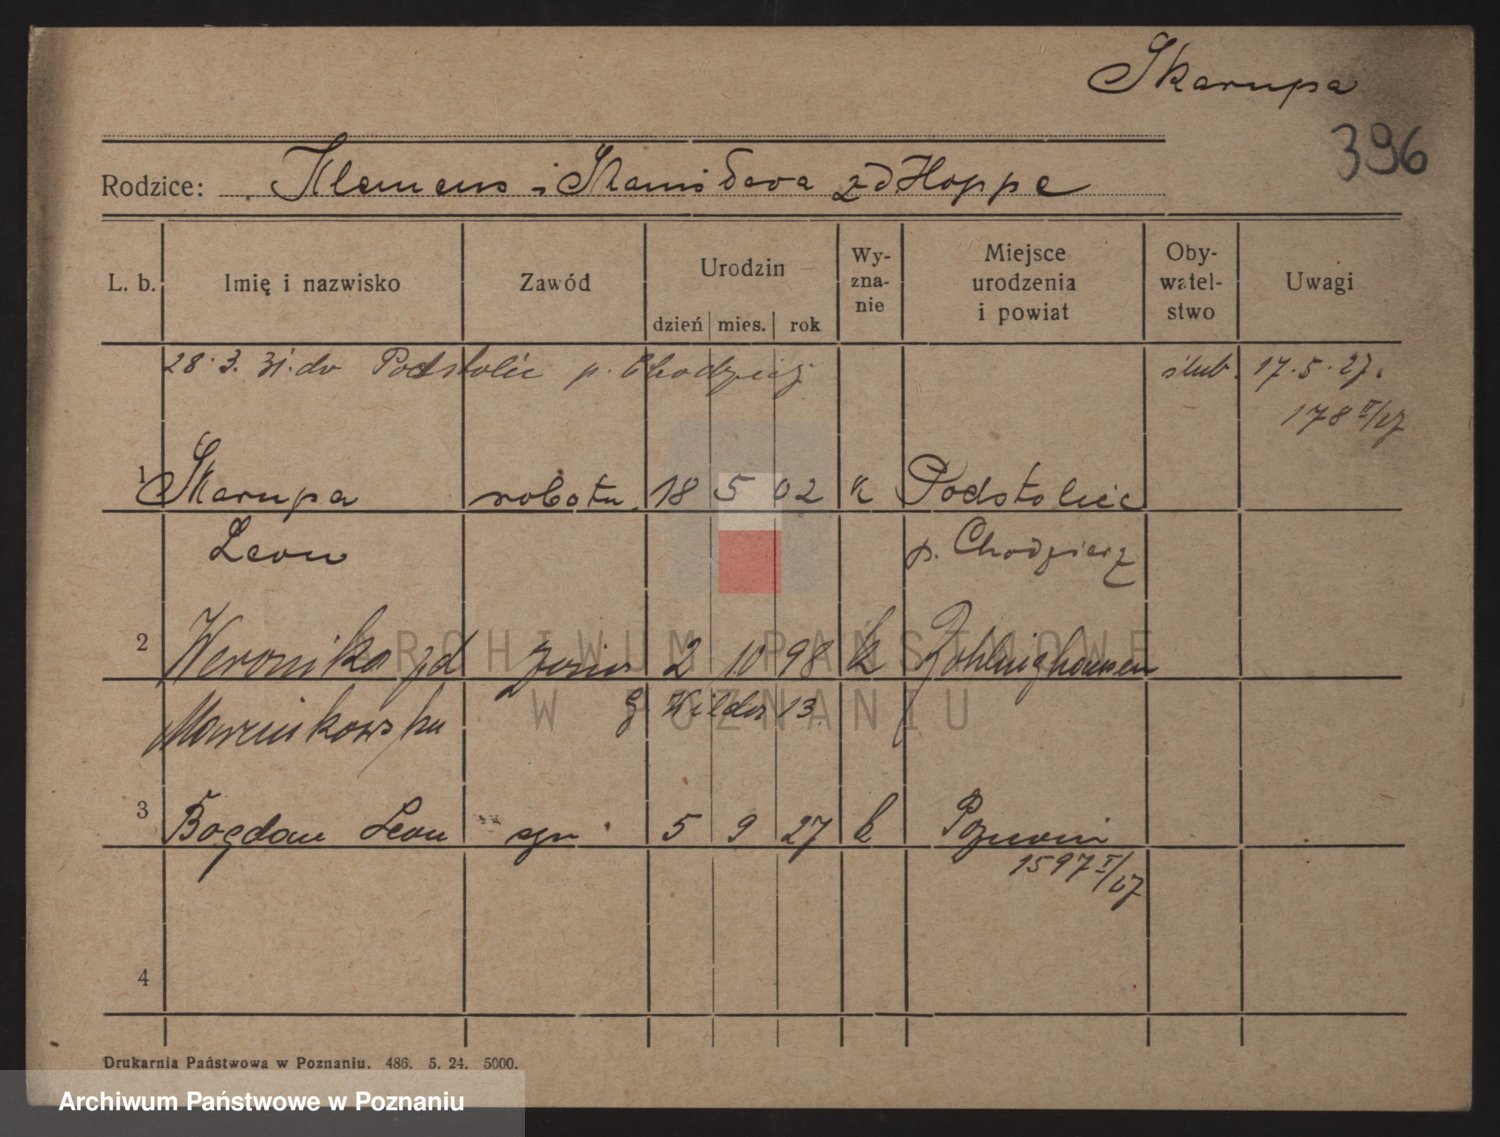 Skarupa
396
Rodzice: Klemens i Stanisława zd Hoppe
L. b. Imię i nazwisko Zawód Urodzin dzień mies. rok Wyznanie Miejsce urodzenia i powiat Obywatelstwo Uwagi
28. 3. 31. do Podstolic p. Chodzież ślub. 17. 5. 27.
178 II/27
1 Skarupa robotn. 18 5 02 k Podstolice
Leon p. Chodzież
2 Weronika zd żona 2 10 98 k
Marcinkowska G Wilda 13
3 Bogdan Leon syn 5 9 27 k Poznań
1597 I/27
4
Drukarnia Państwowa w Poznaniu. 486. 5. 24. 5000.
ARCHIWUM PAŃSTWOWE
W POZNANIU
Archiwum Państwowe w Poznaniu